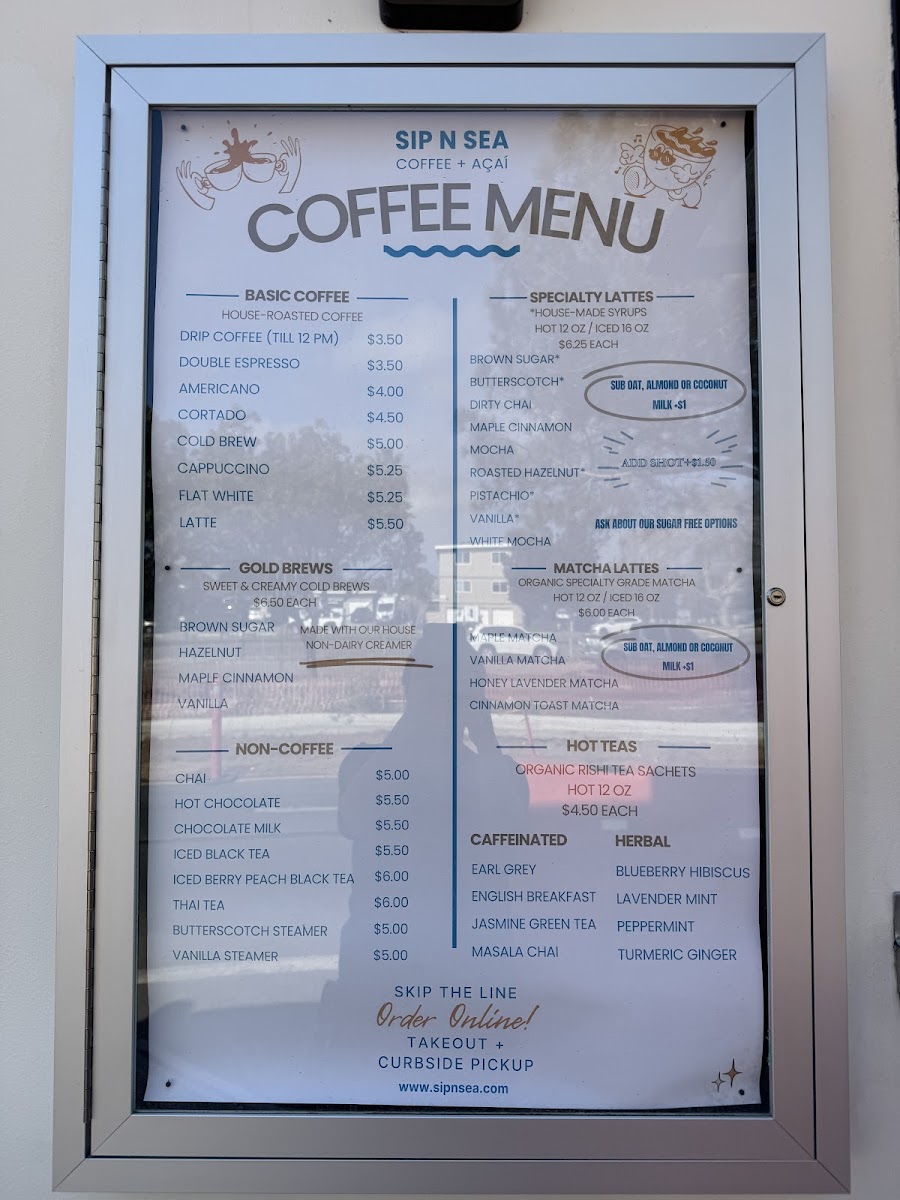 SIP N SEA
COFFEE + AÇAÍ
COFFEE MENU
BASIC COFFEE
HOUSE-ROASTED COFFEE
DRIP COFFEE (TILL 12 PM) $3.50
DOUBLE ESPRESSO $3.50
AMERICANO $4.00
CORTADO $4.50
COLD BREW $5.00
CAPPUCCINO $5.25
FLAT WHITE $5.25
LATTE $5.50
GOLD BREWS
SWEET & CREAMY COLD BREWS
$6.50 EACH
BROWN SUGAR
HAZELNUT
MAPLE CINNAMON
VANILLA
MADE WITH OUR HOUSE
NON-DAIRY CREAMER
NON-COFFEE
CHAI $5.00
HOT CHOCOLATE $5.50
CHOCOLATE MILK $5.50
ICED BLACK TEA $5.50
ICED BERRY PEACH BLACK TEA $6.00
THAI TEA $6.00
BUTTERSCOTCH STEAMER $5.00
VANILLA STEAMER $5.00
SPECIALTY LATTES
*HOUSE-MADE SYRUPS
HOT 12 OZ / ICED 16 OZ
$6.25 EACH
BROWN SUGAR*
BUTTERSCOTCH*
DIRTY CHAI
MAPLE CINNAMON
MOCHA
ROASTED HAZELNUT*
PISTACHIO*
VANILLA*
WHITE MOCHA
SUB OAT, ALMOND OR COCONUT
MILK +$1
ADD SHOT+$1.50
ASK ABOUT OUR SUGAR FREE OPTIONS
MATCHA LATTES
ORGANIC SPECIALTY GRADE MATCHA
HOT 12 OZ / ICED 16 OZ
$6.00 EACH
MAPLE MATCHA
VANILLA MATCHA
HONEY LAVENDER MATCHA
CINNAMON TOAST MATCHA
SUB OAT, ALMOND OR COCONUT
MILK +$1
HOT TEAS
ORGANIC RISHI TEA SACHETS
HOT 12 OZ
$4.50 EACH
CAFFEINATED
EARL GREY
ENGLISH BREAKFAST
JASMINE GREEN TEA
MASALA CHAI
HERBAL
BLUEBERRY HIBISCUS
LAVENDER MINT
PEPPERMINT
TURMERIC GINGER
SKIP THE LINE
Order Online!
TAKEOUT +
CURBSIDE PICKUP
www.sipnsea.com